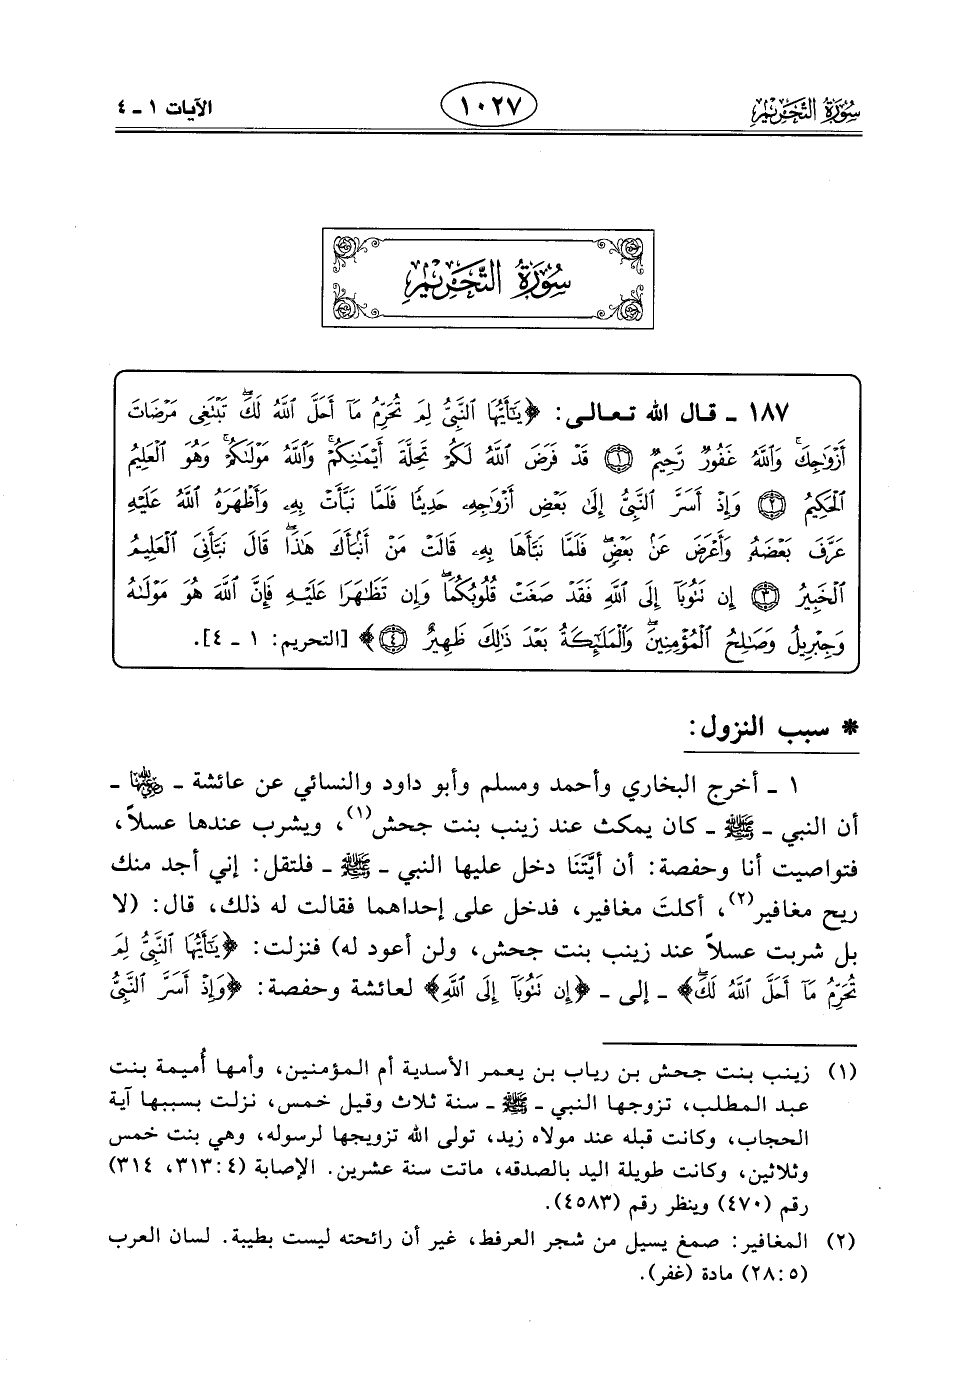 سورة التحريم
١٠٢٧
الآيات ١ ـ ٤
سورة التحريم
١٨٧ ـ قال الله تعالى: ﴿يَٰٓأَيُّهَا ٱلنَّبِيُّ لِمَ تُحَرِّمُ مَآ أَحَلَّ ٱللَّهُ لَكَۖ تَبۡتَغِي مَرۡضَاتَ
أَزۡوَٰجِكَۚ وَٱللَّهُ غَفُورٞ رَّحِيمٞ ۝١ قَدۡ فَرَضَ ٱللَّهُ لَكُمۡ تَحِلَّةَ أَيۡمَٰنِكُمۡۚ وَٱللَّهُ مَوۡلَىٰكُمۡۖ وَهُوَ ٱلۡعَلِيمُ
ٱلۡحَكِيمُ ۝٢ وَإِذۡ أَسَرَّ ٱلنَّبِيُّ إِلَىٰ بَعۡضِ أَزۡوَٰجِهِۦ حَدِيثٗا فَلَمَّا نَبَّأَتۡ بِهِۦ وَأَظۡهَرَهُ ٱللَّهُ عَلَيۡهِ
عَرَّفَ بَعۡضَهُۥ وَأَعۡرَضَ عَنۢ بَعۡضٖۖ فَلَمَّا نَبَّأَهَا بِهِۦ قَالَتۡ مَنۡ أَنۢبَأَكَ هَٰذَاۖ قَالَ نَبَّأَنِيَ ٱلۡعَلِيمُ
ٱلۡخَبِيرُ ۝٣ إِن تَتُوبَآ إِلَى ٱللَّهِ فَقَدۡ صَغَتۡ قُلُوبُكُمَاۖ وَإِن تَظَٰهَرَا عَلَيۡهِ فَإِنَّ ٱللَّهَ هُوَ مَوۡلَىٰهُ
وَجِبۡرِيلُ وَصَٰلِحُ ٱلۡمُؤۡمِنِينَۖ وَٱلۡمَلَٰٓئِكَةُ بَعۡدَ ذَٰلِكَ ظَهِيرٌ ۝٤﴾ [التحريم: ١ ـ ٤].
* سبب النزول:
١ ـ أخرج البخاري وأحمد ومسلم وأبو داود والنسائي عن عائشة ـ رضي الله عنها ـ
أن النبي ـ ﷺ ـ كان يمكث عند زينب بنت جحش(١)، ويشرب عندها عسلاً،
فتواصيت أنا وحفصة: أن أيَّتَنَا دخل عليها النبي ـ ﷺ ـ فلتقل: إني أجد منك
ريح مغافير(٢)، أكلتَ مغافير، فدخل على إحداهما فقالت له ذلك، قال: (لا
بل شربت عسلاً عند زينب بنت جحش، ولن أعود له) فنزلت: ﴿يَٰٓأَيُّهَا ٱلنَّبِيُّ لِمَ
تُحَرِّمُ مَآ أَحَلَّ ٱللَّهُ لَكَۖ﴾ ـ إلى ـ ﴿إِن تَتُوبَآ إِلَى ٱللَّهِ﴾ لعائشة وحفصة: ﴿وَإِذۡ أَسَرَّ ٱلنَّبِيُّ
(١) زينب بنت جحش بن رياب بن يعمر الأسدية أم المؤمنين، وأمها أُميمة بنت
عبد المطلب، تزوجها النبي ـ ﷺ ـ سنة ثلاث وقيل خمس، نزلت بسببها آية
الحجاب، وكانت قبله عند مولاه زيد، تولى الله تزويجها لرسوله، وهي بنت خمس
وثلاثين، وكانت طويلة اليد بالصدقه، ماتت سنة عشرين. الإصابة (٤:٣١٣، ٣١٤)
رقم (٤٧٠) وينظر رقم (٤٥٨٣).
(٢) المغافير: صمغ يسيل من شجر العرفط، غير أن رائحته ليست بطيبة. لسان العرب
(٢٨:٥) مادة (غفر).